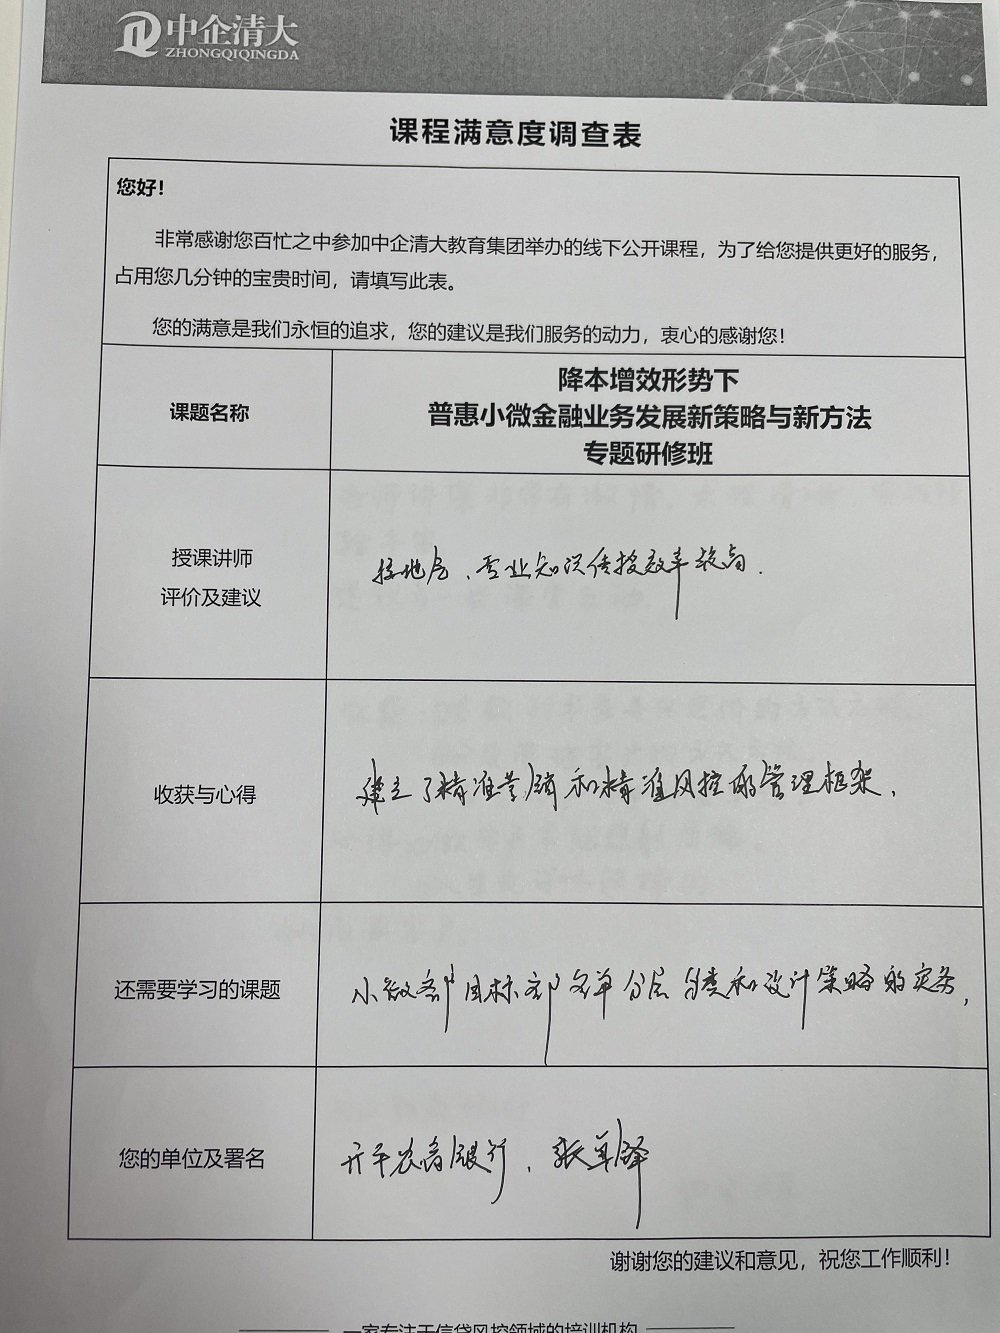 中企清大
ZHONGQIQINGDA
课程满意度调查表
您好！
非常感谢您百忙之中参加中企清大教育集团举办的线下公开课程，为了给您提供更好的服务，
占用您几分钟的宝贵时间，请填写此表。
您的满意是我们永恒的追求，您的建议是我们服务的动力，衷心的感谢您！
课题名称
降本增效形势下
普惠小微金融业务发展新策略与新方法
专题研修班
授课讲师
评价及建议
接地气、专业知识传授效率较高.
收获与心得
建立了精准营销和精准风控的管理框架，
还需要学习的课题
小微客户目标客户名单分层分类和设计策略的实务，
您的单位及署名
开平农商银行，张
谢谢您的建议和意见，祝您工作顺利！
一家专注于信贷风控领域的培训机构